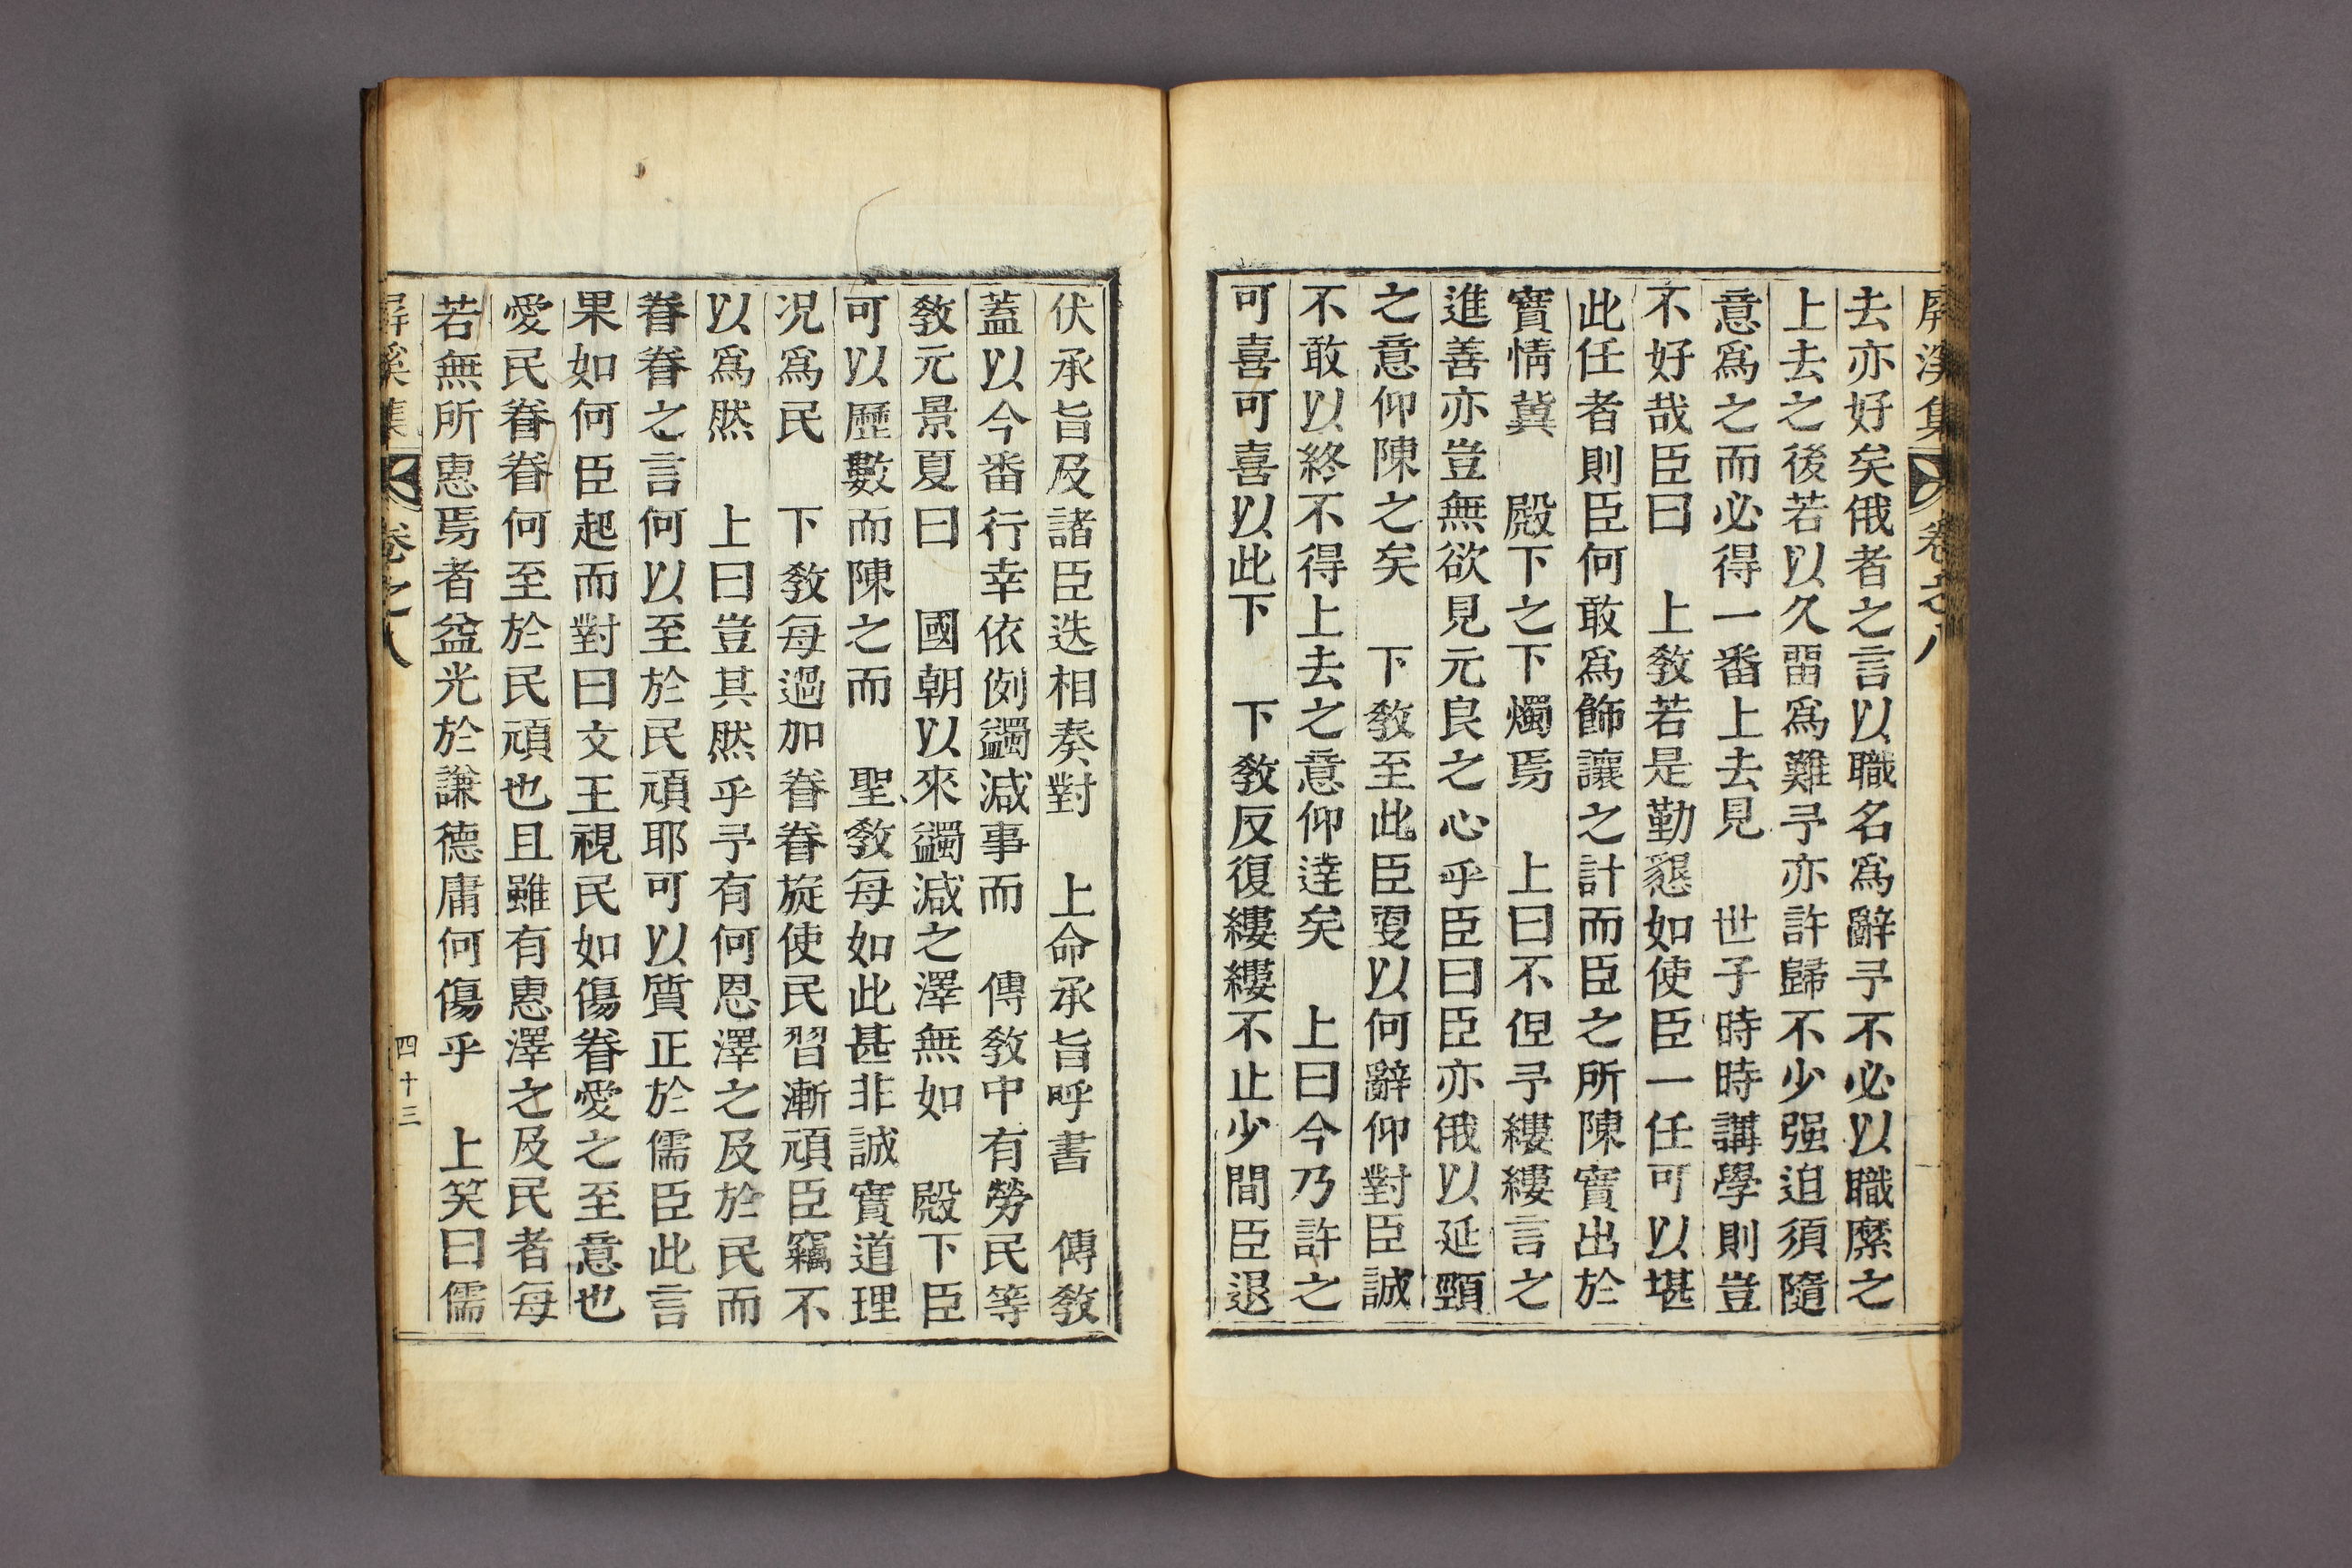 屛溪集 卷之八
去亦好矣俄者之言以職名爲辭予不必以職縻之
上去之後若以久留爲難予亦許歸不少强迫須隨
意爲之而必得一番上去見 世子時時講學則豈
不好哉臣曰 上敎若是勤懇如使臣一任可以堪
此任者則臣何敢爲飾讓之計而臣之所陳實出於
實情冀 殿下之下燭焉 上曰不但予縷縷言之
進善亦豈無欲見元良之心乎臣曰臣亦俄以延頸
之意仰陳之矣 下敎至此臣更以何辭仰對臣誠
不敢以終不得上去之意仰達矣 上曰今乃許之
可喜可喜以此下 下敎反復縷縷不止少間臣退
伏承旨及諸臣迭相奏對 上命承旨呼書 傳敎
蓋以今番行幸依例蠲减事而 傳敎中有勞民等
敎元景夏曰 國朝以來蠲减之澤無如 殿下臣
可以歷數而陳之而 聖敎每如此甚非誠實道理
况爲民 下敎每過加眷眷旋使民習漸頑臣竊不
以爲然 上曰豈其然乎予有何恩澤之及於民而
眷眷之言何以至於民頑耶可以質正於儒臣此言
果如何臣起而對曰文王視民如傷眷愛之至意也
愛民眷眷何至於民頑也且雖有惠澤之及民者每
若無所惠焉者益光於謙德庸何傷乎 上笑曰儒
屛溪集 卷之八 四十三